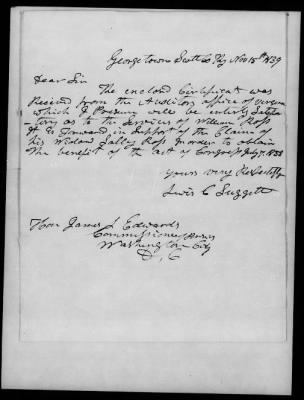 George town Scott Co Ky Nov 15th 1839
Dear Sir
The enclosd Certificat was
Receivd from the Auditors office of Virginia
which I Presum will be entirly Satisfac
tory as to the Services of William Ross
it is Forwardd in Support of the Claim of
his Widow Salley Ross in order to obtain
the benefit of the act of Congress July 7. 1838
yours very Respectfully
Lewis C Suggett
Hon James L Edwards
Commissioner
Washington City
D, C